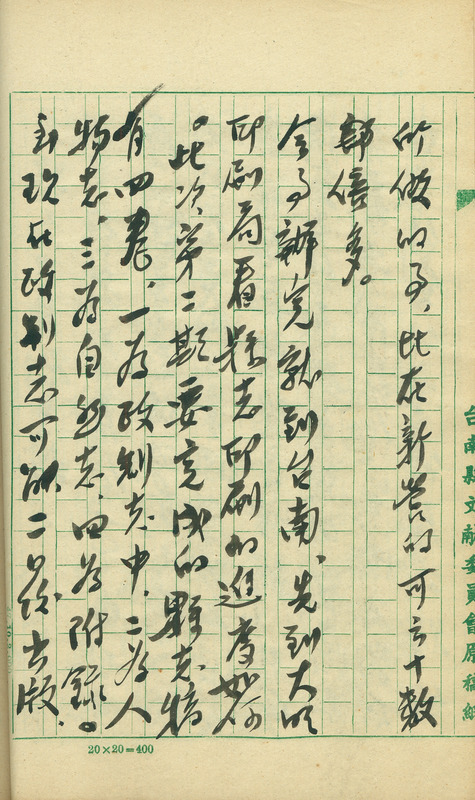 台南縣文獻委員會原稿紙
所做的事，比在新營的可云十數
倍多。
会事辦完就到台南、先到大明
印刷局看縣志印刷的進度如何
。此次第二期要完成的縣志稿
有四卷，一為政制志中，二為人
物志，三為自然志，四為附錄。
到現在政制志可能二月份出版，
20×20=400